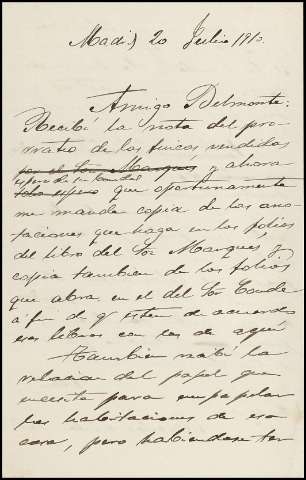 Madrid 20 Julio 1910.
Amigo Belmonte:
Recibí la nota del pro-
rratio de las fincas vendidas
por el Sor Marqués y ahora
espero que oportunamente
me mande copia de las ano-
taciones que haga en los folios
del libro del Sor Marques y
copia tambien de los folios
que abra en el del Sor Conde
á fin de q.e esten de acuerdo
esos libros con los de aquí
Tambien recibí la
relacion del papel que
necesita para empapelar
las habitaciones de esa
casa, pero habiendose ter